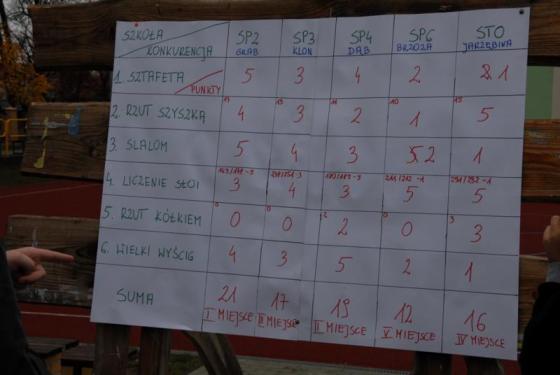 SZKOŁA KONKURENCJA SP2 GRAB SP3 KLON SP4 DĄB SP6 BRZOZA STO JARZĘBINA
1. SZTAFETA PUNKTY 5 3 4 2 1
2. RZUT SZYSZKĄ 4 3 2 1 5
3. SLALOM 5 4 3 2 1
4. LICZENIE SŁOI 3 4 3 5 5
5. RZUT KÓŁKIEM 0 0 2 0 3
6. WIELKI WYŚCIG 4 3 5 2 1
SUMA 21 17 19 12 16
I MIEJSCE III MIEJSCE II MIEJSCE V MIEJSCE IV MIEJSCE